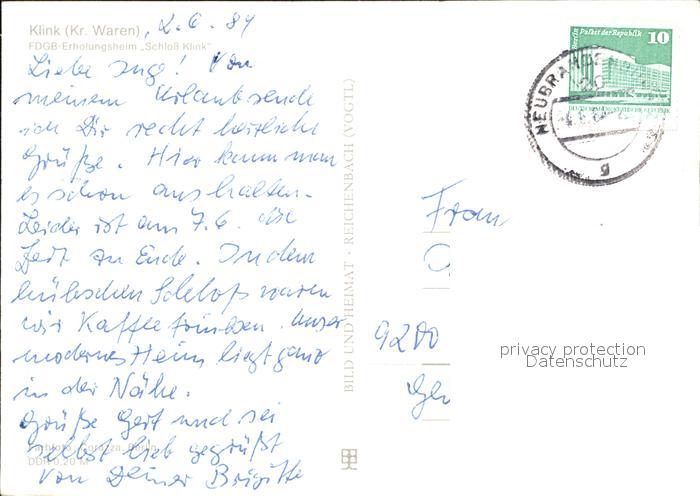 Klink (Kr. Waren), 2.6.84
FDGB-Erholungsheim „Schloß Klink"
Liebe Inge! Von
meinem Urlaub sende
ich Dir recht herzliche
Grüße. Hier kann man
es schon aushalten.
Leider ist am 7.6. die
Zeit zu Ende. In dem
hübschen Schloß waren
wir Kaffee trinken. Unser
modernes Heim liegt ganz
in der Nähe.
Grüße Gert und sei
selbst lieb gegrüßt
von Deiner Brigitte
DDR 0,20 M
BILD UND HEIMAT · REICHENBACH (VOGTL)
Palast der Republik
10
NEUBRANDEN
Frau
9200
privacy protection
Datenschutz